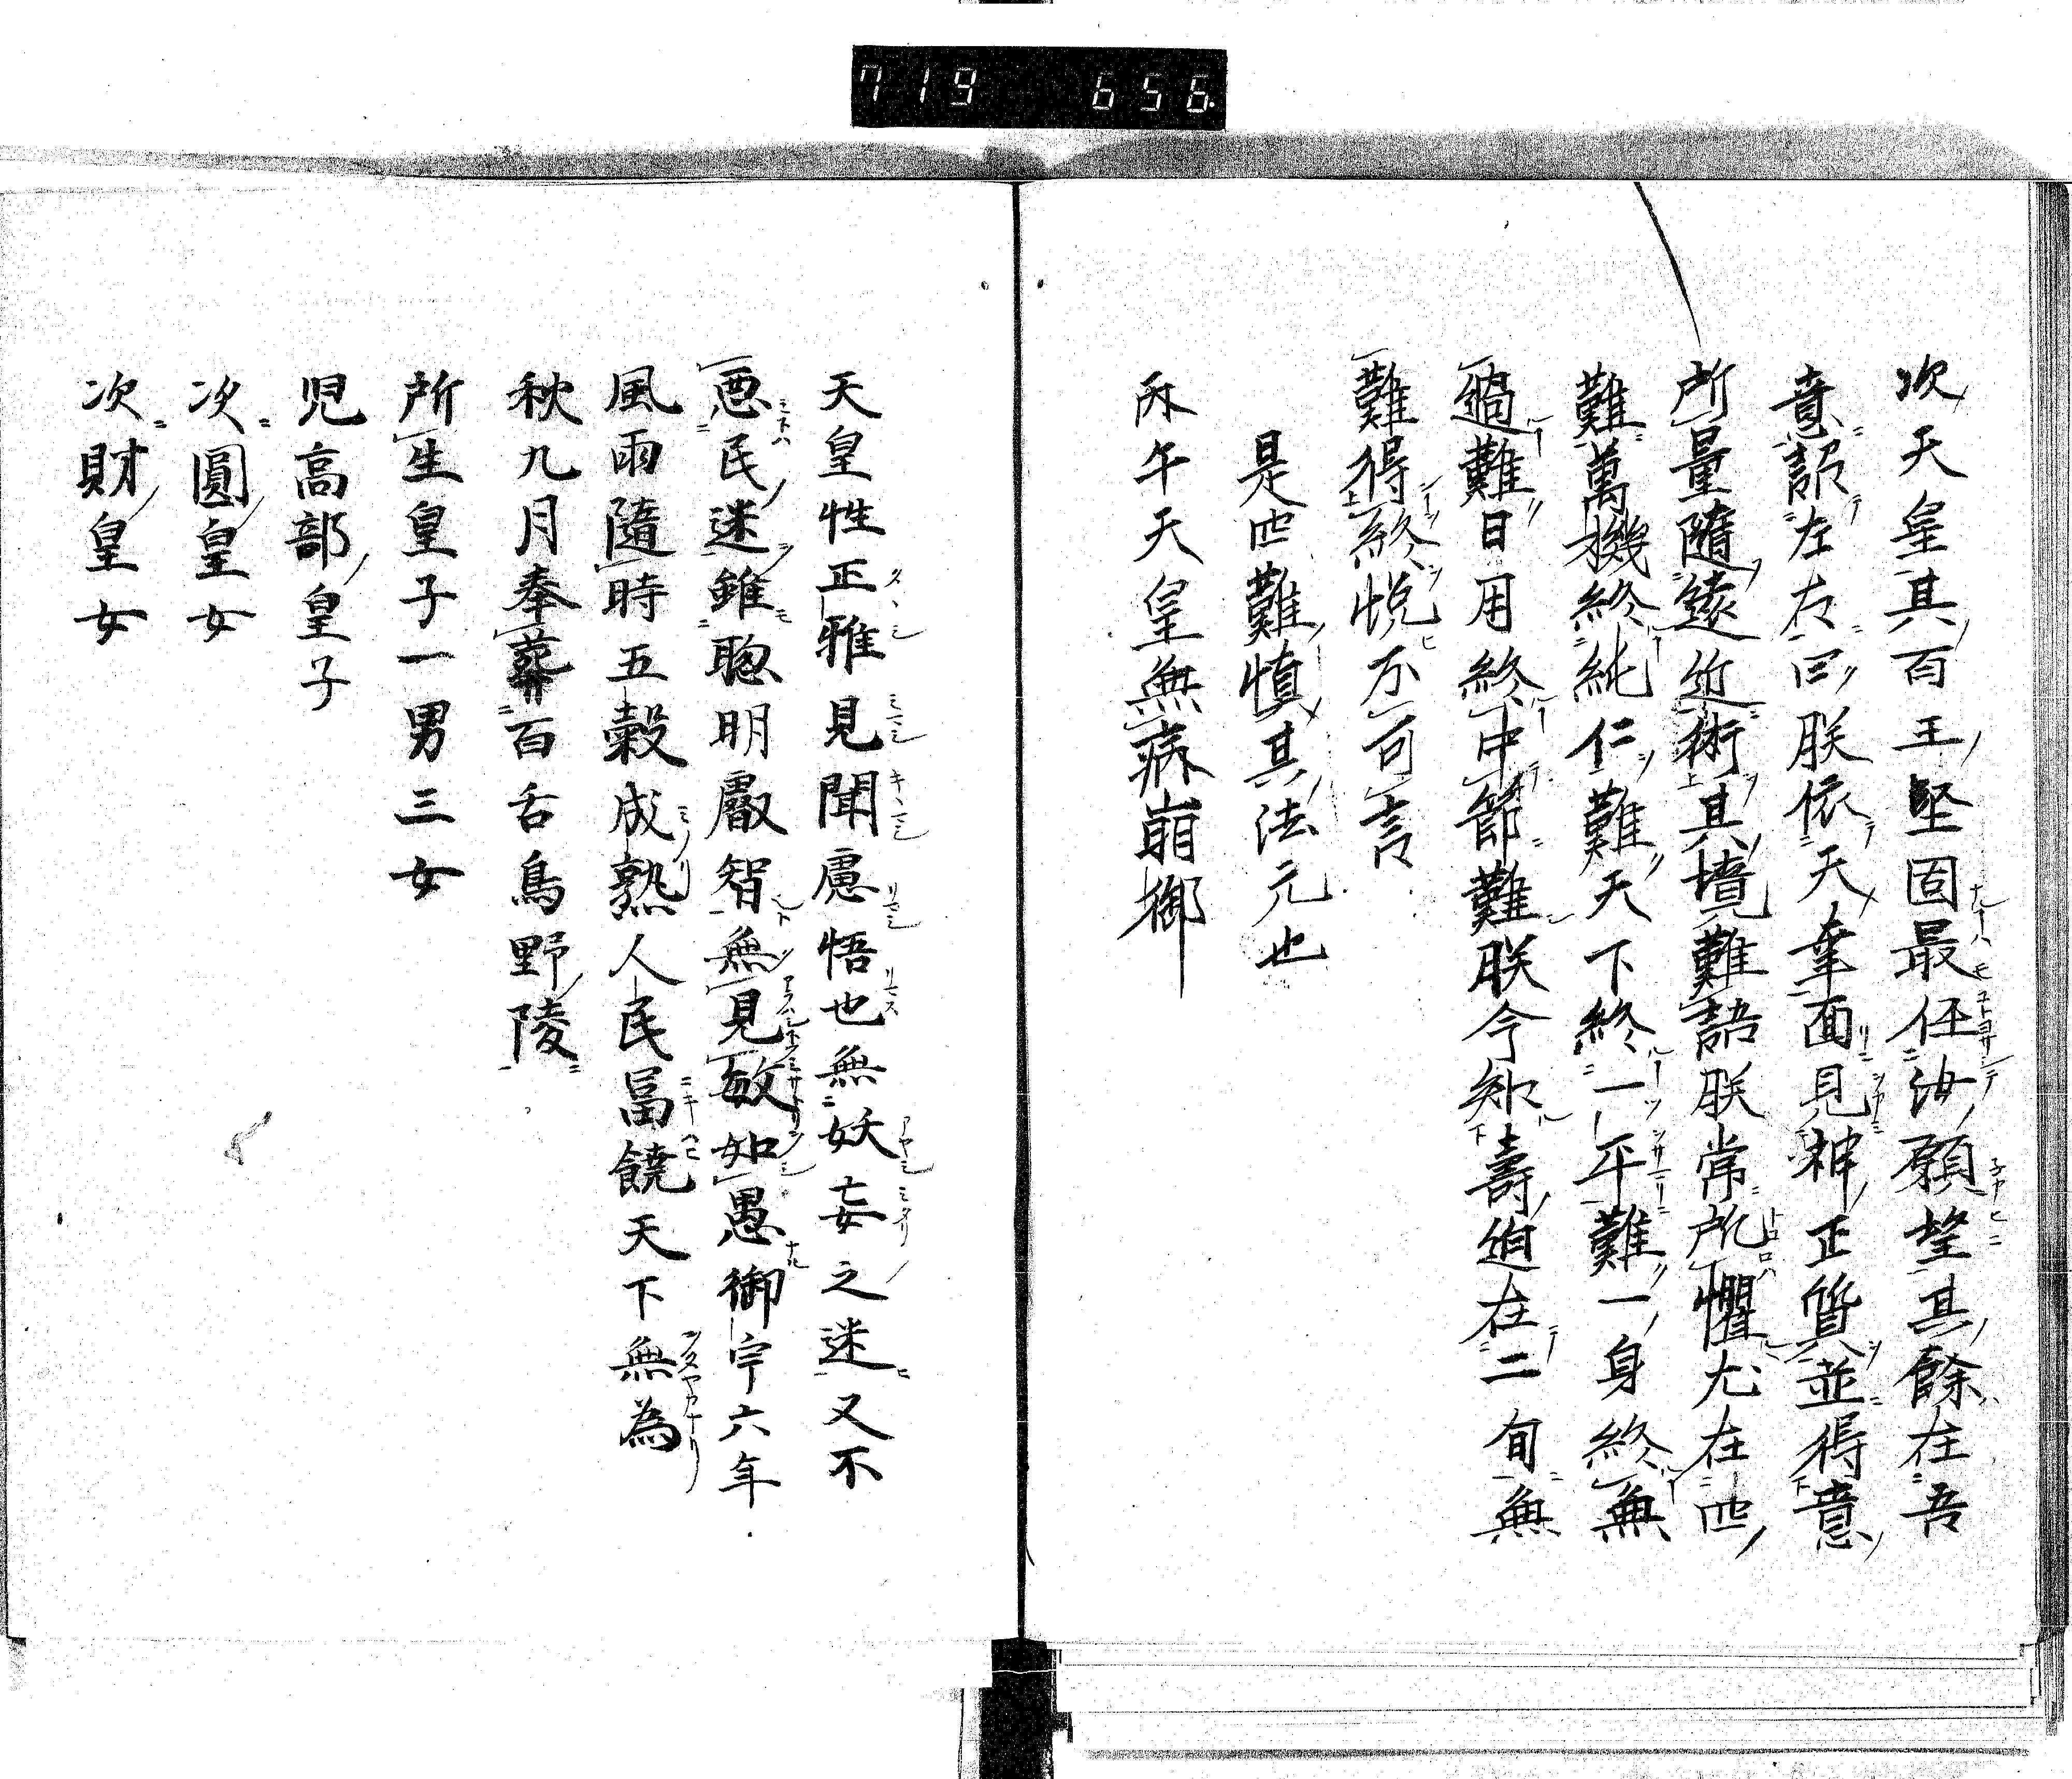 719 656
次天皇其百王堅固最任汝願望其餘在吾
意詔左右曰朕依天幸面見神正質並得意
所量隨遠近術其境難語朕常所懼尤在四
難萬機終純仁難天下終一平難一身終無
過難日用終中節難朕今知壽迫在二旬無
難得終悦不可言
是四難慎其法元也
丙午天皇無病崩御
天皇性正雅見聞慮悟也無妖妄之迷又不
惡民迷雖聰明叡智無見敏如愚御宇六年
風雨隨時五穀成熟人民冨饒天下無為
秋九月奉葬百舌鳥野陵
所生皇子一男三女
児高部皇子
次圓皇女
次財皇女